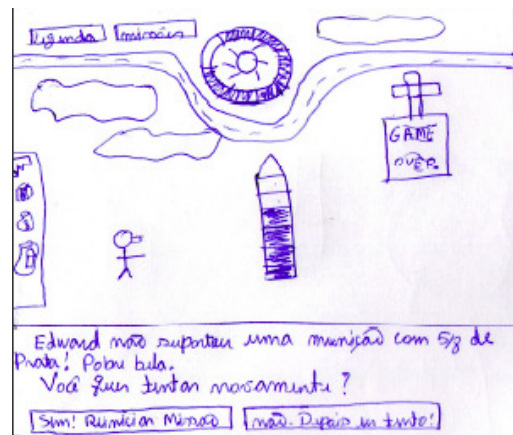 legenda missões
GAME
OVER.
Edward não suportou uma munição com 5/8 de
Prata! Pobre bula.
Você quer tentar novamente?
Sim! Reiniciar Missão não. Depois eu tento!